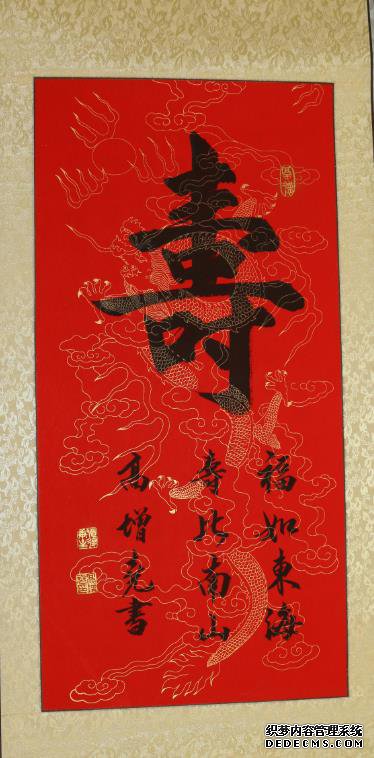 壽
福如東海
壽比南山
高增亮書
织梦内容管理系统
DEDECMS.COM